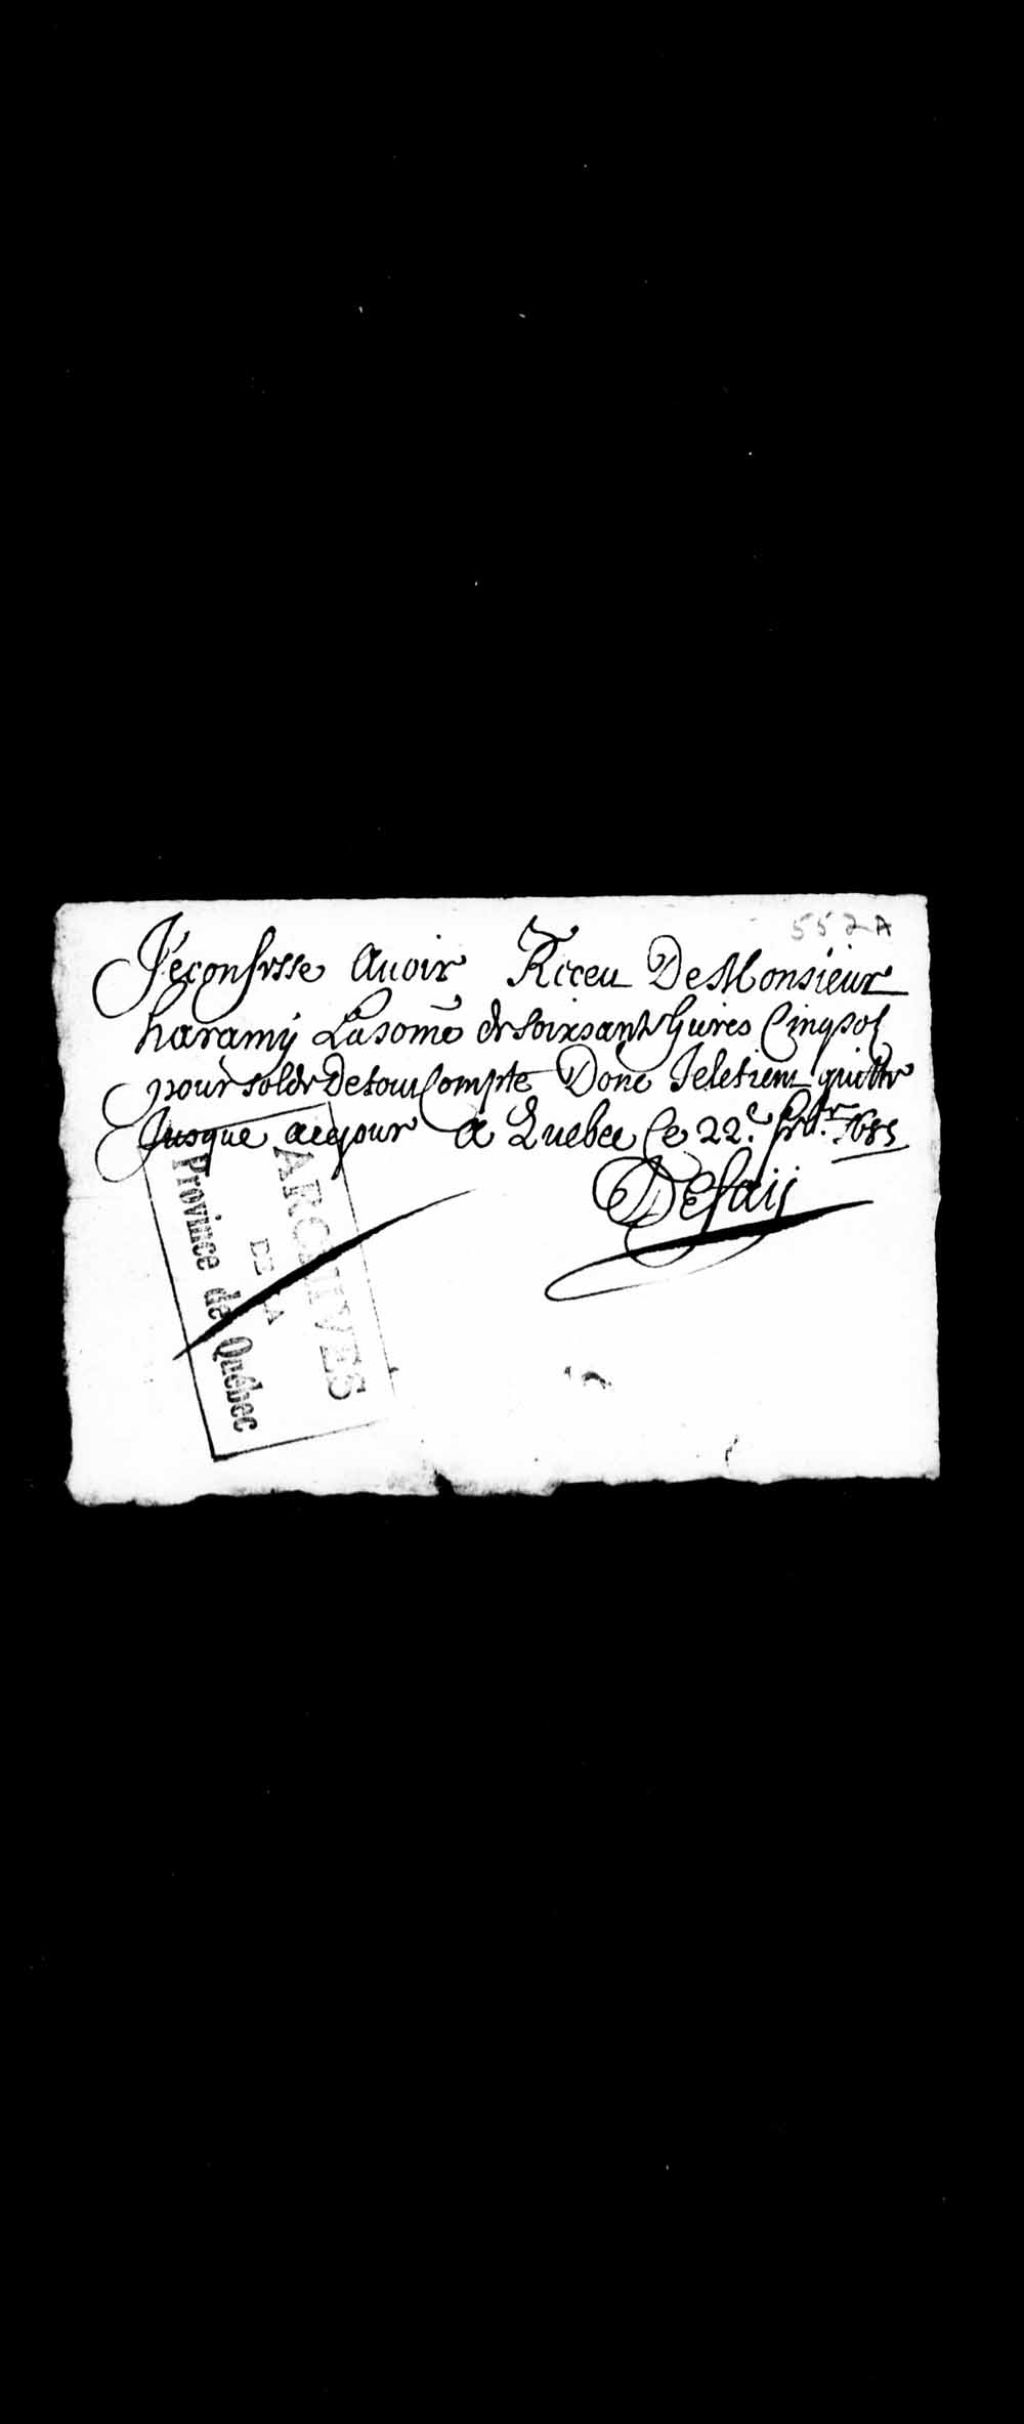 552A
Jéconfesse Auoir Receu De Monsieur
haramÿ La somē de soixsante liures Cinq sol
pour solde de tout Compte Donc Je le tiens quitte
Jusque a ce jour a Quebec ce 22.e 1685
Desaij
ARCHIVES
DE LA
Province de Québec